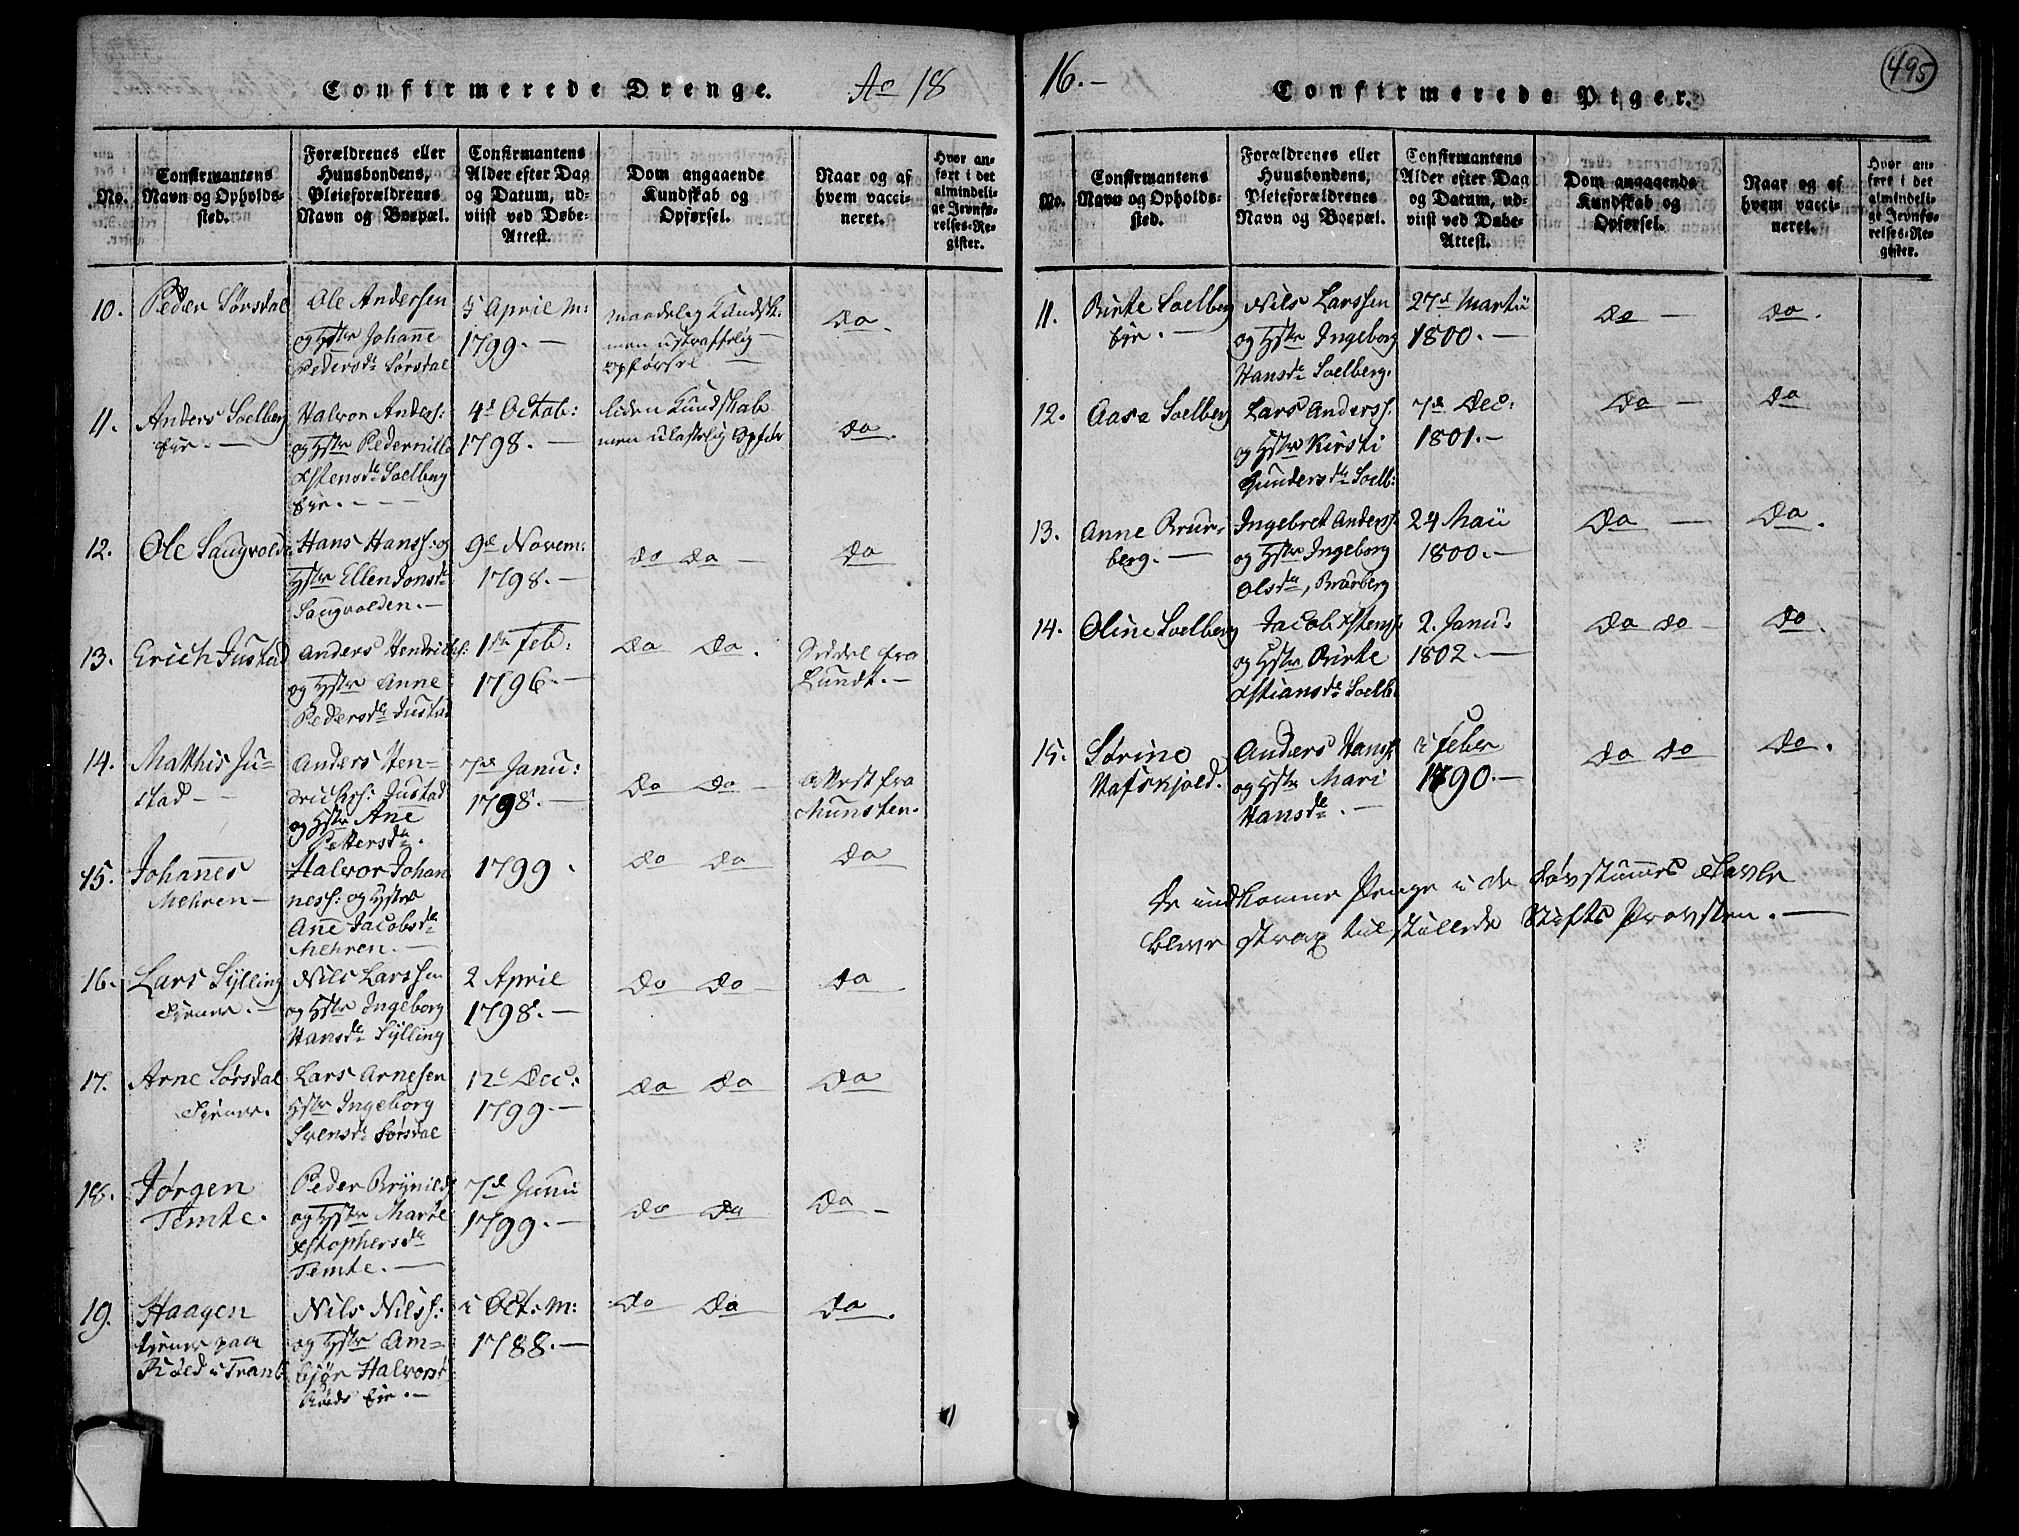 Confirmerede Drenge. Ao 18
No.
Confirmantens
Navn og Opholds-
sted.
Forældrenes eller
Huusbondens,
Pleieforældrenes
Navn og Boepæl.
Confirmantens
Alder efter Dag
og Datum, ud-
viist ved Døbe-
Attest.
Dom angaaende
Kundskab og
Opførsel.
Naar og af
hvem vacci-
neret.
Hvor an-
ført i det
almindeli-
ge Jevnfø-
relses-Re-
gister.
10.
Peder Sørsdal
Ole Andersen
og Hstr Johanne
Pedersd. Sørsdal
5 April M:
1799. —
maadelig Kundsk.
men ustraffelig
opførsel
Do.
11.
Anders Soelberg
Eie. —
Halvor Anders:
og Hstr Pedernille
Xstensd. Soelberg
Eie. —
4d Octob:
1798. —
liden Kundskab
men ulastelig Opfør
Do.
12.
Ole Saugvolden
Hans Hanss: og
Hstr Ellen Jonsd.
Saugvolden. —
9d Novem:
1798. —
do do —
Do
13.
Erich Justad
Anders Hendrichs:
og Hstr Anne
Pedersd. Justad
1ste Feb:
1796. —
Do Do.
Seddel fra
Lundt. —
14.
Mathis Ju-
stad —
Anders Hen-
drichss: Justad
og Hstr Ane
Pettersd.
7d Janu:
1798. —
Do Do —
Attest fra
Munsten.
15.
Johannes
Mehren —
Halvor Johan
ness: og Hstr
Anne Jacobsd.
Mehren. —
1799.
Do Do
Do
16.
Lars Sylling
tjener. —
Nils Larssen
og Hstr Ingeborg
Hansd. Sylling
2 April
1798. —
Do Do —
Do
17.
Arne Sørsdal
tjener.
Lars Arnesen
Hstr Ingeborg
Svensd. Sørsdal
12d Dec:
1799. —
Do Do
Do
18.
Jørgen
Temte.
Peder Brynilds
og Hstr Marte
Xstophersd.
Temte. —
7d Junii
1799. —
Do Do
Do —
19.
Haagen
tjener paa
Røed i Tranb
Nils Nilss:
og Hstr Am-
bjør Halvorsd
Røeds Eie. —
i Oct: M:
1788. —
Do Do
Do.
16. — Confirmerede Piger. 495
No.
Confirmantens
Navn og Opholds-
sted.
Forældrenes eller
Huusbondens,
Pleieforældrenes
Navn og Boepæl.
Confirmantens
Alder efter Dag
og Datum, ud-
viist ved Døbe-
Attest.
Dom angaaende
Kundskab og
Opførsel.
Naar og af
hvem vacci-
neret.
Hvor an-
ført i det
almindeli-
ge Jevnfø-
relses-Re-
gister.
11.
Birte Soelberg
Eie. —
Nils Larssen
og Hstr Ingeborg
Hansd. Soelberg.
27d Martii
1800. —
Do —
Do.
12.
Aase Soelberg
Lars Anderss:
og Hstr Kirsti
Gundersd. Soelb:
7d Dec:
1801. —
Do —
Do
13.
Anne Brur-
berg. —
Ingebret Anderss.
og Hstr Ingeborg
Olsd., Brurberg
24 Maii
1800. —
Do —
Do.
14.
Oline Soelberg
Jacob Xstenss
og Hstr Birte
Xstiansd. Soelb.
2. Janu:
1802. —
Do do —
Do.
15.
Sørine
Hafskjold.
Anders Hanss.
og Hstr Mari
Hansd. —
i Feber
1790. —
Do Do
Do.
De indkomne Penge i de Døvstummes Tavle
blever strax tilstillede Stifts Provsten. —